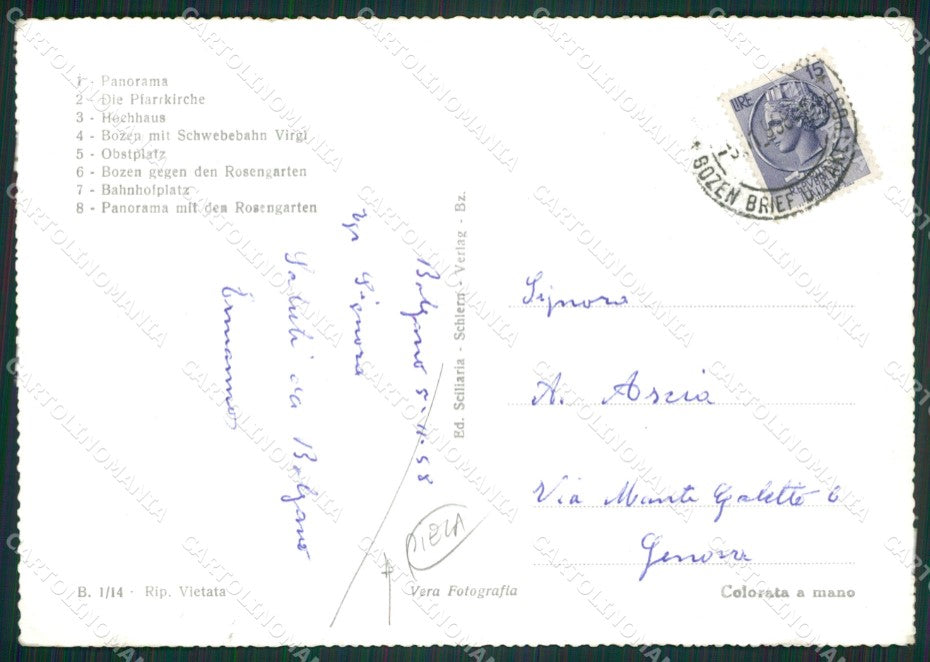 1 - Panorama
2 - Die Pfarrkirche
3 - Hochhaus
4 - Bozen mit Schwebebahn Virgl
5 - Obstplatz
6 - Bozen gegen den Rosengarten
7 - Bahnhofplatz
8 - Panorama mit den Rosengarten
LIRE 15
BOZEN BRIEF
Bolzano 5-11-58
Signora
Saluti da Bolzano
Ermanno
Ed. Sciliaria - Schlern - Verlag - Bz.
Signora
A. Ascia
Via Monte Galletto 6
Genova
B. 1/14 - Rip. Vietata
Vera Fotografia
Colorata a mano
CARTOLINOMANIA